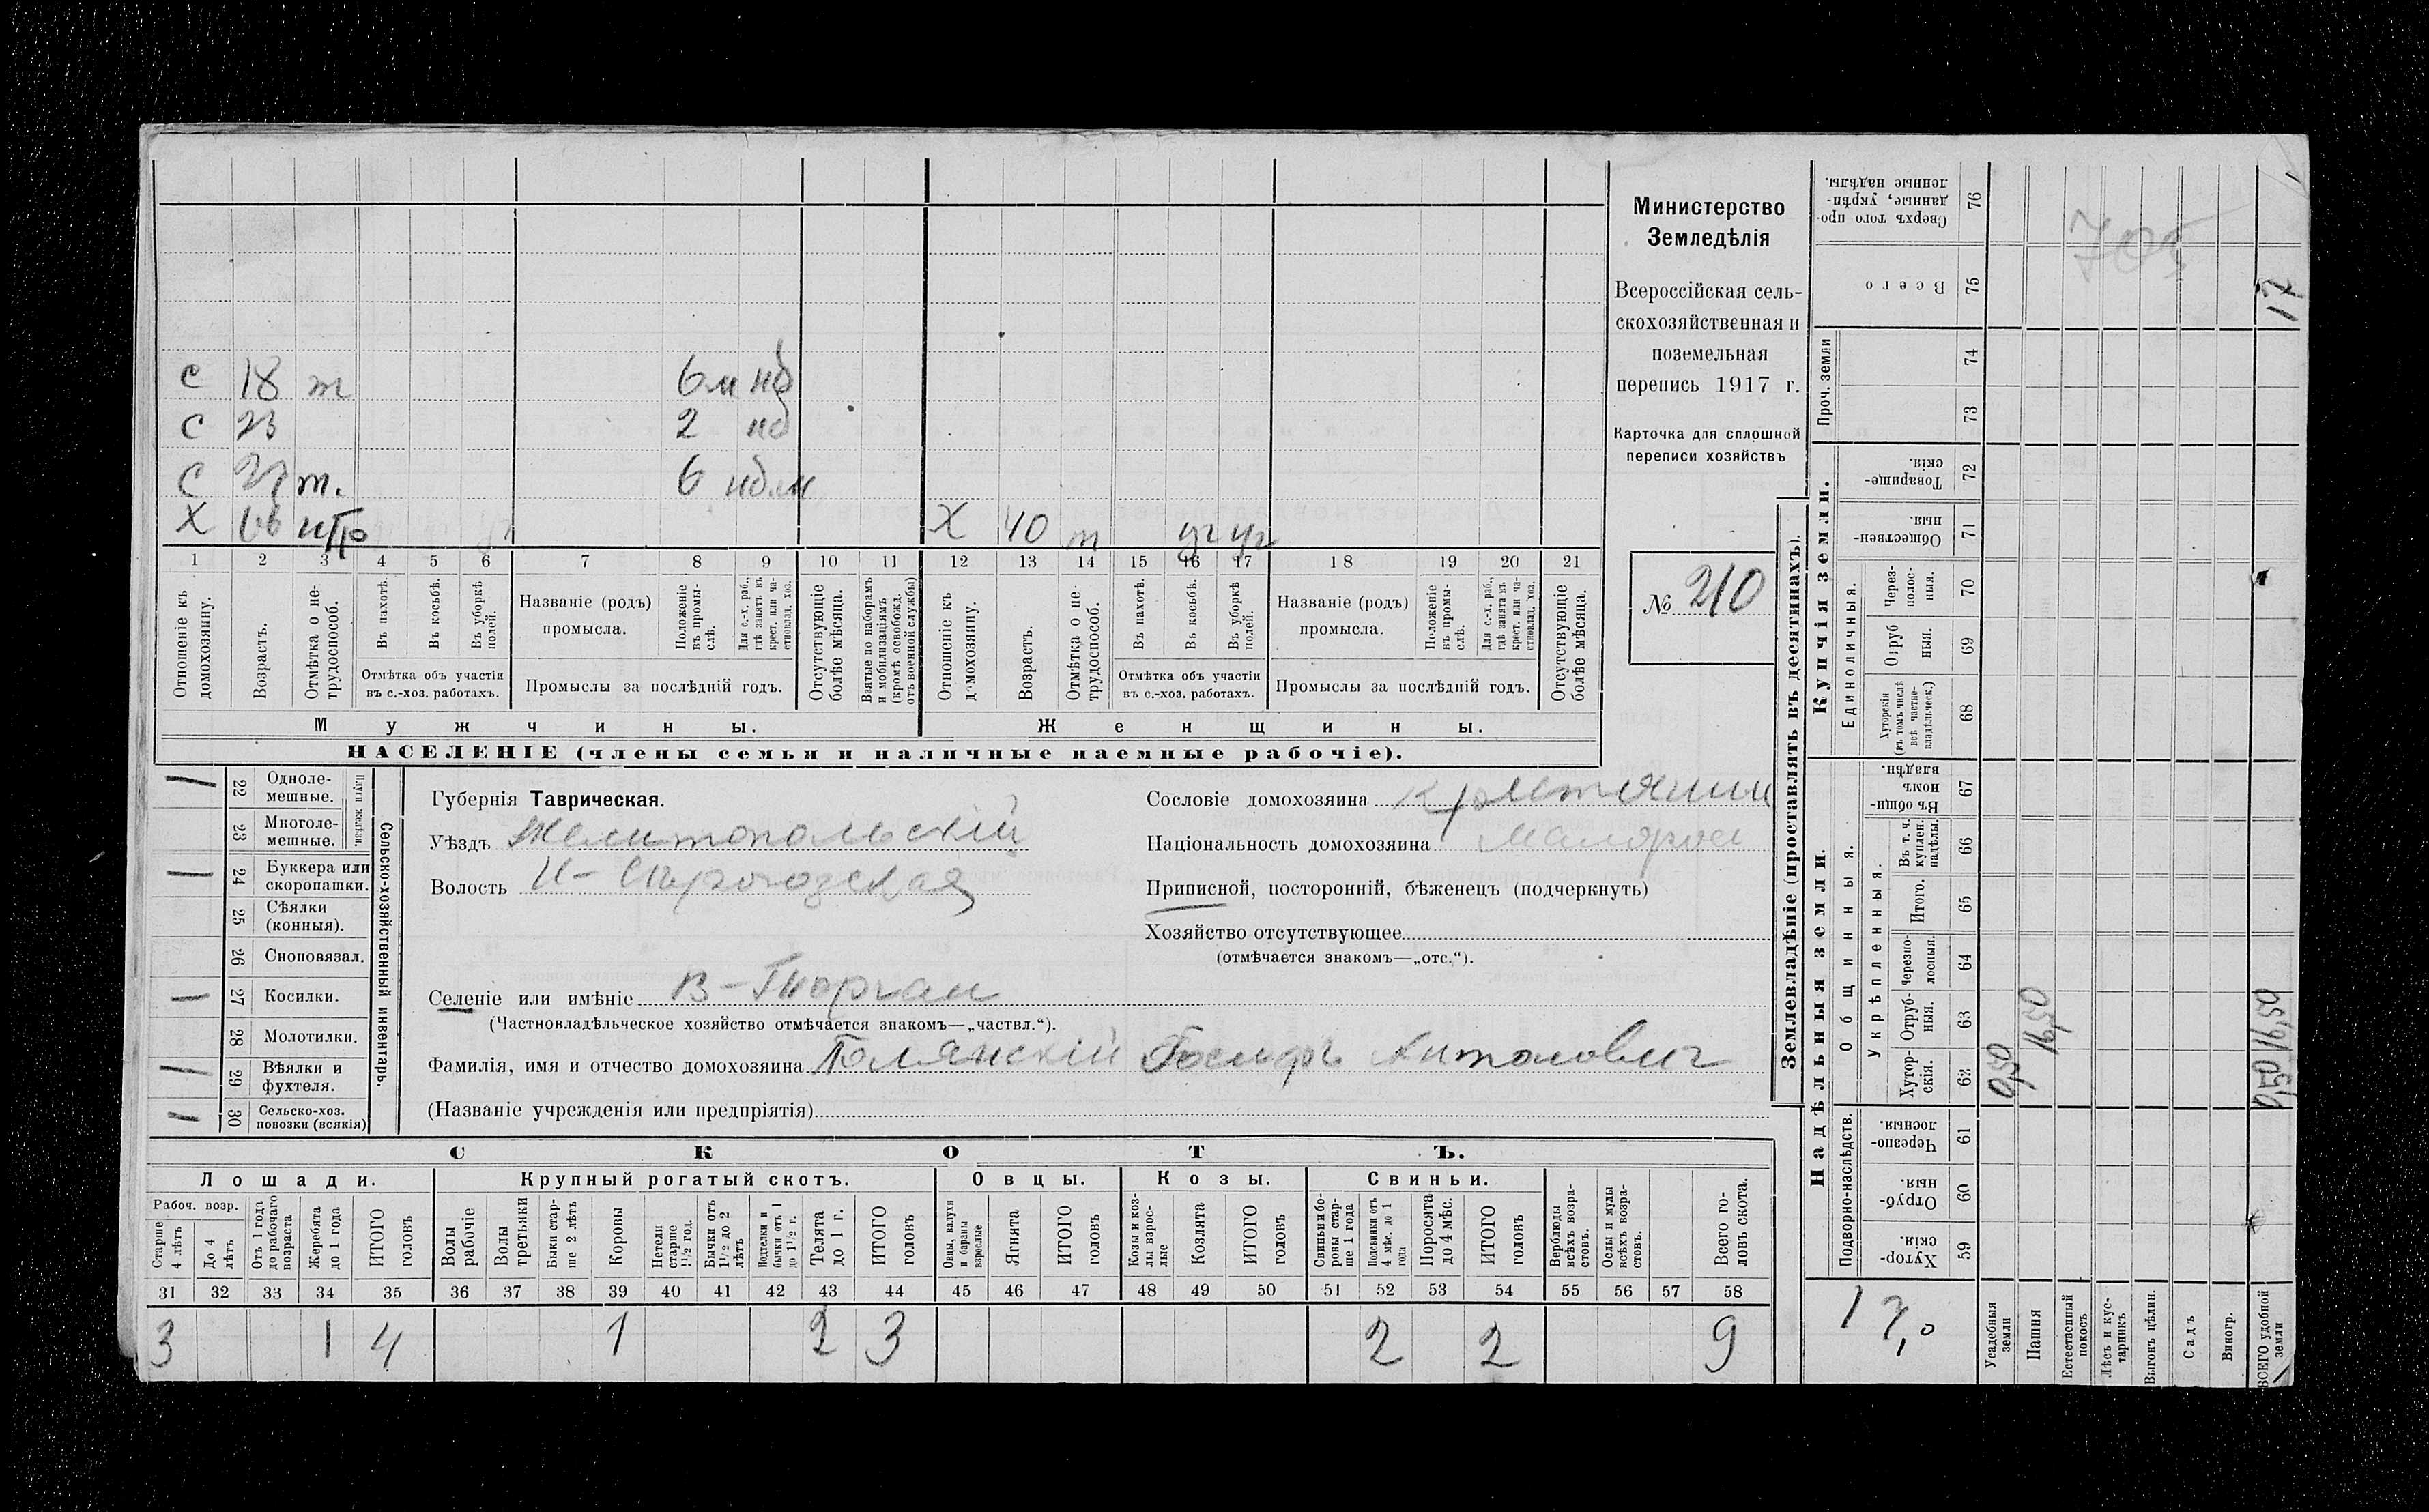 Министерство
Земледѣлія
Всероссійская сель-
скохозяйственная и
поземельная
перепись 1917 г.
Карточка для сплошной
переписи хозяйствъ
№ 210
с 18 т 6 м нб
с 23 2 нб
с 27 т. 6 нб.м
Х нтр Х 40 т уч уч
1 2 3 4 5 6 7 8 9 10 11 12 13 14 15 16 17 18 19 20 21
Отношеніе къ домохозяину.
Возрастъ.
Отмѣтка о не-трудоспособ.
Въ пахотѣ.
Въ косьбѣ.
Въ уборкѣ полей.
Отмѣтка объ участіи въ с.-хоз. работахъ.
Названіе (родъ) промысла.
Положеніе въ промы-слѣ.
Для с.-х. раб., гдѣ занятъ въ крест. или ча-стновлад. хоз.
Промыслы за послѣдній годъ.
Отсутствующіе болѣе мѣсяца.
Взятые по наборамъ и мобилизаціямъ (кромѣ освобожд. отъ военной службы)
Отношеніе къ домохозяину.
Возрастъ.
Отмѣтка о не-трудоспособ.
Въ пахотѣ.
Въ косьбѣ.
Въ уборкѣ полей.
Отмѣтка объ участіи въ с.-хоз. работахъ.
Названіе (родъ) промысла.
Положеніе въ промы-слѣ.
Для с.-х. раб., гдѣ занята въ крест. или ча-стновлад. хоз.
Промыслы за послѣдній годъ.
Отсутствующіе болѣе мѣсяца.
Мужчины. Женщины.
НАСЕЛЕНІЕ (члены семьи и наличные наемные рабочіе).
Сельско-хозяйственный инвентарь.
Плуги желѣзн.
22 Одноле-мешные. 1
23 Многоле-мешные.
24 Буккера или скоропашки. 1
25 Сѣялки (конныя).
26 Сноповязал.
27 Косилки. 1
28 Молотилки.
29 Вѣялки и фухтеля. 1
30 Сельско-хоз. повозки (всякія) 1
Губернія Таврическая.
Уѣздъ Мелитопольскій
Волость Н-Сѣрогозская
Селеніе или имѣніе В-Тюркан
(Частновладѣльческое хозяйство отмѣчается знакомъ—„частвл.“).
Фамилія, имя и отчество домохозяина Голянскій Іосифъ Антонович
(Названіе учрежденія или предпріятія)
Сословіе домохозяина крестьянин
Національность домохозяина Малорос
Приписной, посторонній, бѣженецъ (подчеркнуть)
Хозяйство отсутствующее
(отмѣчается знакомъ—„отс.“).
СКОТЪ.
Лошади. Крупный рогатый скотъ. Овцы. Козы. Свиньи.
Рабоч. возр.
Старше 4 лѣтъ
До 4 лѣтъ
Отъ 1 года до рабочаго возраста
Жеребята до 1 года
ИТОГО головъ
Волы рабочіе
Волы третьяки
Быки стар-ше 2 лѣтъ
Коровы
Нетели старше 1½ год.
Бычки отъ 1½ до 2 лѣтъ
Подтелки и бычки отъ 1 до 1½ г.
Телята до 1 г.
ИТОГО головъ
Овцы, валухи и бараны взрослые
Ягнята
ИТОГО головъ
Козы и коз-лы взрос-лые
Козлята
ИТОГО головъ
Свиньи и бо-ровы стар-ше 1 года
Подсвинки отъ 4 мѣс. до 1 года
Поросята до 4 мѣс.
ИТОГО головъ
Верблюды всѣхъ возра-стовъ.
Ослы и мулы всѣхъ возра-стовъ.
Всего го-ловъ скота.
31 32 33 34 35 36 37 38 39 40 41 42 43 44 45 46 47 48 49 50 51 52 53 54 55 56 57 58
3 1 4 1 2 3 2 2 9
Землевладѣніе (проставлять въ десятинахъ).
Надѣльныя земли. Купчія земли.
Проч. земли
Подворно-наслѣдств.
Общинныя.
Укрѣпленныя.
Единоличныя.
Сверхъ того про-данные, укрѣп-ленные надѣлы. 76
Всего 75 17
74
73
Товарище-скія. 72
Обществен-ныя. 71
Через-полос-ныя. 70
Отруб-ныя. 69
Хуторскія (въ томъ числѣ всѣ частно-владѣльческ.) 68
Въ общи-номъ владѣн. 67
Въ т. ч. куплен. надѣлы. 66
Итого. 65
Черезпо-лосныя. 64
Отруб-ныя. 63
Хутор-скія. 62
Черезпо-лосныя. 61
Отруб-ныя. 60
Хутор-скія. 59
0,50 16,50 0,50 16,50
705
17,0
Усадебныя земли
Пашня
Естественный покосъ
Лѣсъ и кус-тарникъ
Выгонъ цѣлин.
Садъ
Виногр.
ВСЕГО удобной земли